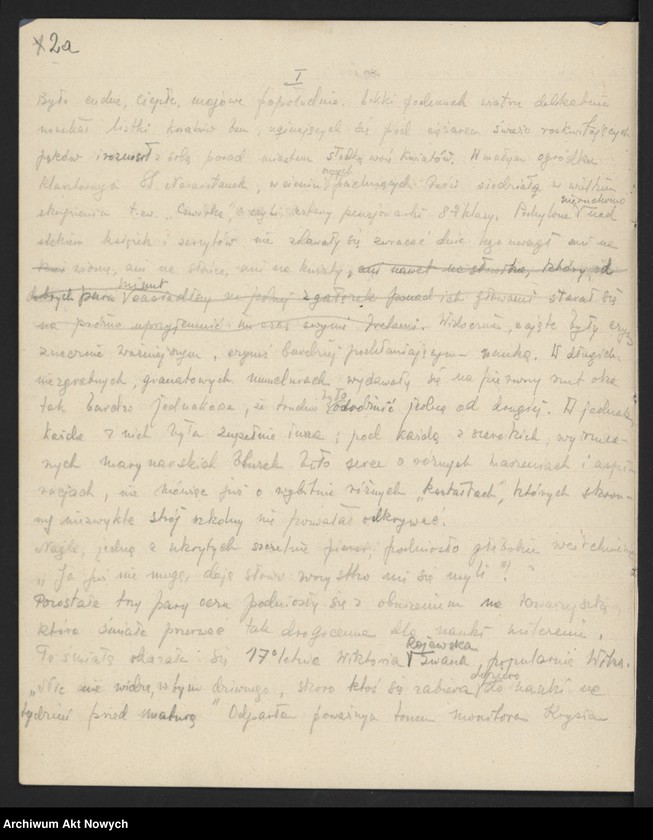 x 2a
I
Było cudne, ciepłe, majowe popołudnie. Lekki podmuch wiatru delikatnie
muskał listki kwiatów bzu, uginających się pod ciężarem świeżo rozkwitających
pąków i roznosił z sobą ponad miastem słodką woń kwiatów. W małym ogródku
klasztornym SS. Nazaretanek, w cieniu pachnących bzów siedziały w wielkim
skupieniu t.zw. "Czwórka", czyli cztery pensjonarki 8-ej klasy. Pochylone nieruchomo nad
stekiem książek i zeszytów nie zdawały się zwracać dnie tyle uwagi ani na
ziemię, ani na słońce, ani na kwiaty, ani nawet na słowika, który od
dobrych paru minut na gałązce ponad ich głowami starał się
na próżno uprzyjemnić im czas swymi trelami. Widocznie, zajęte były czymś
znacznie ważniejszym, czymś bardziej pochłaniającym – nauką. W długich
niezgrabnych, granatowych mundurach wydawały się na pierwszy rzut oka
tak bardzo jednakowe, że trudno było odróżnić jedną od drugiej. A jednak
każda z nich była zupełnie inna; pod każdą z szerokich, wyrzuca-
nych marynarskich bluzek biło serce o różnych marzeniach i aspi-
racjach, nie mówiąc już o wybitnie różnych "kształtach", których skrom-
ny niezwykle strój szkolny nie pozwalał odkrywać.
Nagle, jedną z ukrytych szczelnie piersi, podniosło głębokie westchnienie
"Ja już nie mogę, daję słowo wszystko mi się myli"!
Pozostałe trzy pary oczu podniosły się z oburzeniem na towarzyszkę,
która śmiała przerwać tak drogocenne dla nauki milczenie.
Tą śmiałą okazała się 17º letnia Wiktoria Rojewska Iwana, popularnie Wiks.
"Nic nie widzę w tym dziwnego, skoro ktoś się zabiera dopiero do nauki na
tydzień przed maturą" Odparła poważnym tonem monitora Krysia
Archiwum Akt Nowych